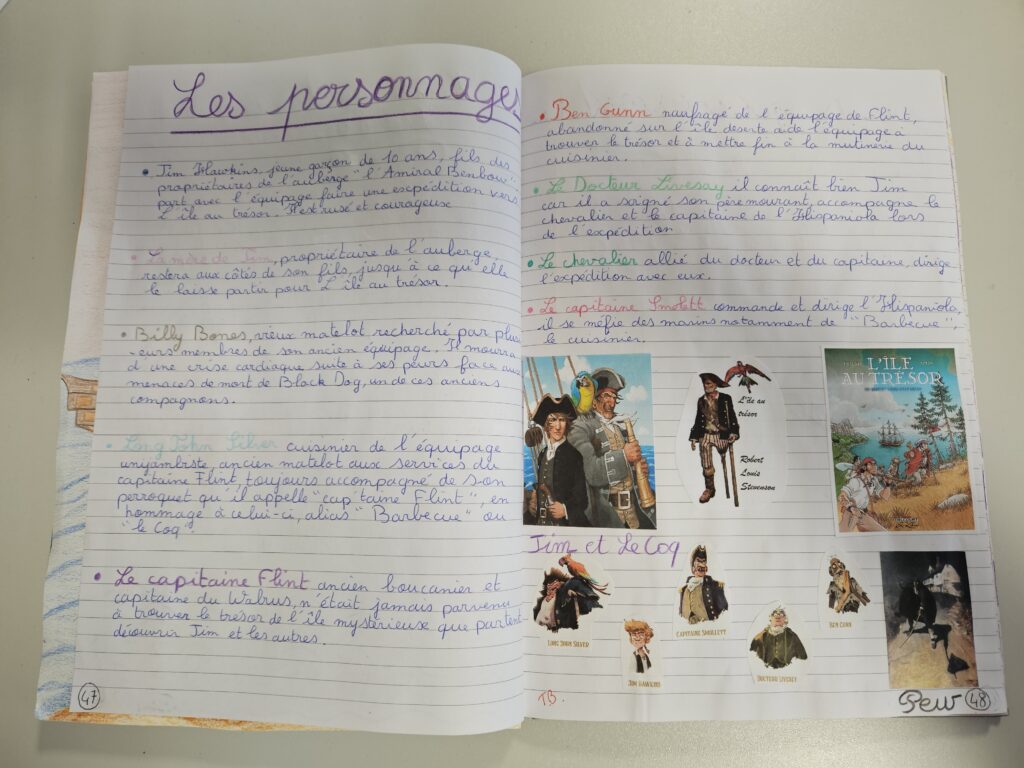 Les personnages
• Jim Hawkins, jeune garçon de 10 ans, fils des
propriétaires de l'auberge "l'Amiral Benbow"
part avec l'équipage faire une expédition vers
L'île au trésor. Il est rusé et courageuse
• La mère de Jim, propriétaire de l'auberge,
restera aux côtés de son fils, jusqu'à ce qu'elle
le laisse partir pour L'île au trésor.
• Billy Bones, vieux matelot recherché par plusi
-eurs membres de son ancien équipage. Il mourra
d'une crise cardiaque suite à ses peurs face aux
menaces de mort de Black Dog, un de ces anciens
compagnons.
• Long John Silver cuisinier de l'équipage
unijambiste, ancien matelot aux services du
capitaine Flint, toujours accompagné de son
perroquet qu'il appelle "cap'taine Flint", en
hommage à celui-ci, alias "Barbecue" ou
"le Coq".
• Le capitaine Flint ancien boucanier et
capitaine du Walrus, n'était jamais parvenu
à trouver le trésor de l'île mystérieuse que partent
découvrir Jim et les autres.
47
• Ben Gunn naufragé de l'équipage de Flint,
abandonné sur l'île deserte aide l'équipage à
trouver le trésor et à mettre fin à la mutinerie du
cuisinier.
• Le Docteur Livesay il connaît bien Jim
car il a soigné son père mourant, accompagne le
chevalier et le capitaine de l'Hispaniola lors
de l'expédition
• Le chevalier allié du docteur et du capitaine, dirige
l'expédition avec eux.
• Le capitaine Smolett commande et dirige l'Hispaniola,
il se méfie des marins notamment de "Barbecue",
le cuisinier.
L'île au
trésor
Robert
Louis
Stevenson
L'ÎLE
AU TRÉSOR
Jim et Le Coq
LONG JOHN SILVER
JIM HAWKINS
CAPITAINE SMOLLETT
DOCTEUR LIVESEY
BEN GUNN
TB.
Pew
48